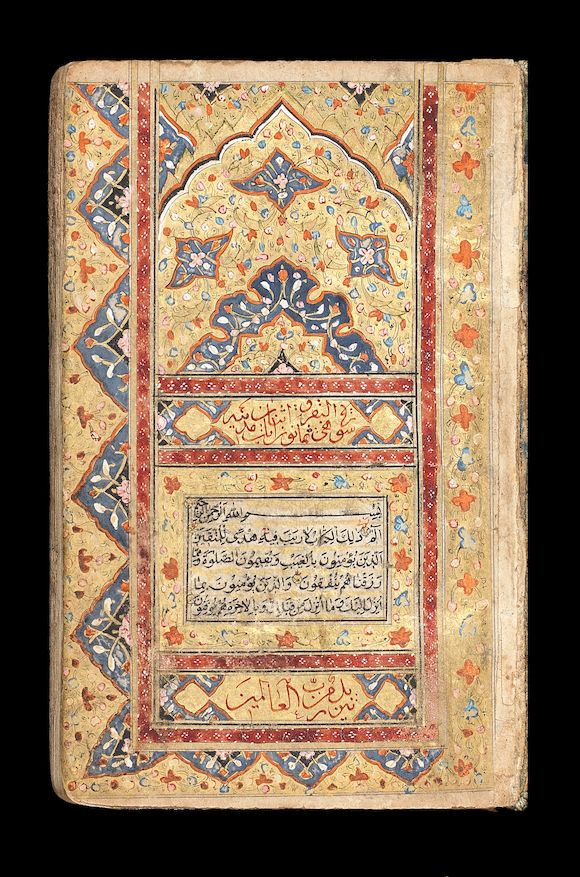 سورة البقرة مدنية
بِسْمِ اللهِ الرَّحْمنِ الرَّحِيمِ
الم ذلِكَ الْكِتَابُ لَا رَيْبَ فِيهِ هُدًى لِلْمُتَّقِينَ
الَّذِينَ يُؤْمِنُونَ بِالْغَيْبِ وَيُقِيمُونَ الصَّلٰوةَ وَمِمَّا
رَزَقْنَاهُمْ يُنْفِقُونَ وَالَّذِينَ يُؤْمِنُونَ بِمَا
اُنْزِلَ اِلَيْكَ وَمَا اُنْزِلَ مِنْ قَبْلِكَ وَبِالْاخِرَةِ هُمْ يُوقِنُونَ
تنزيل من رب العالمين